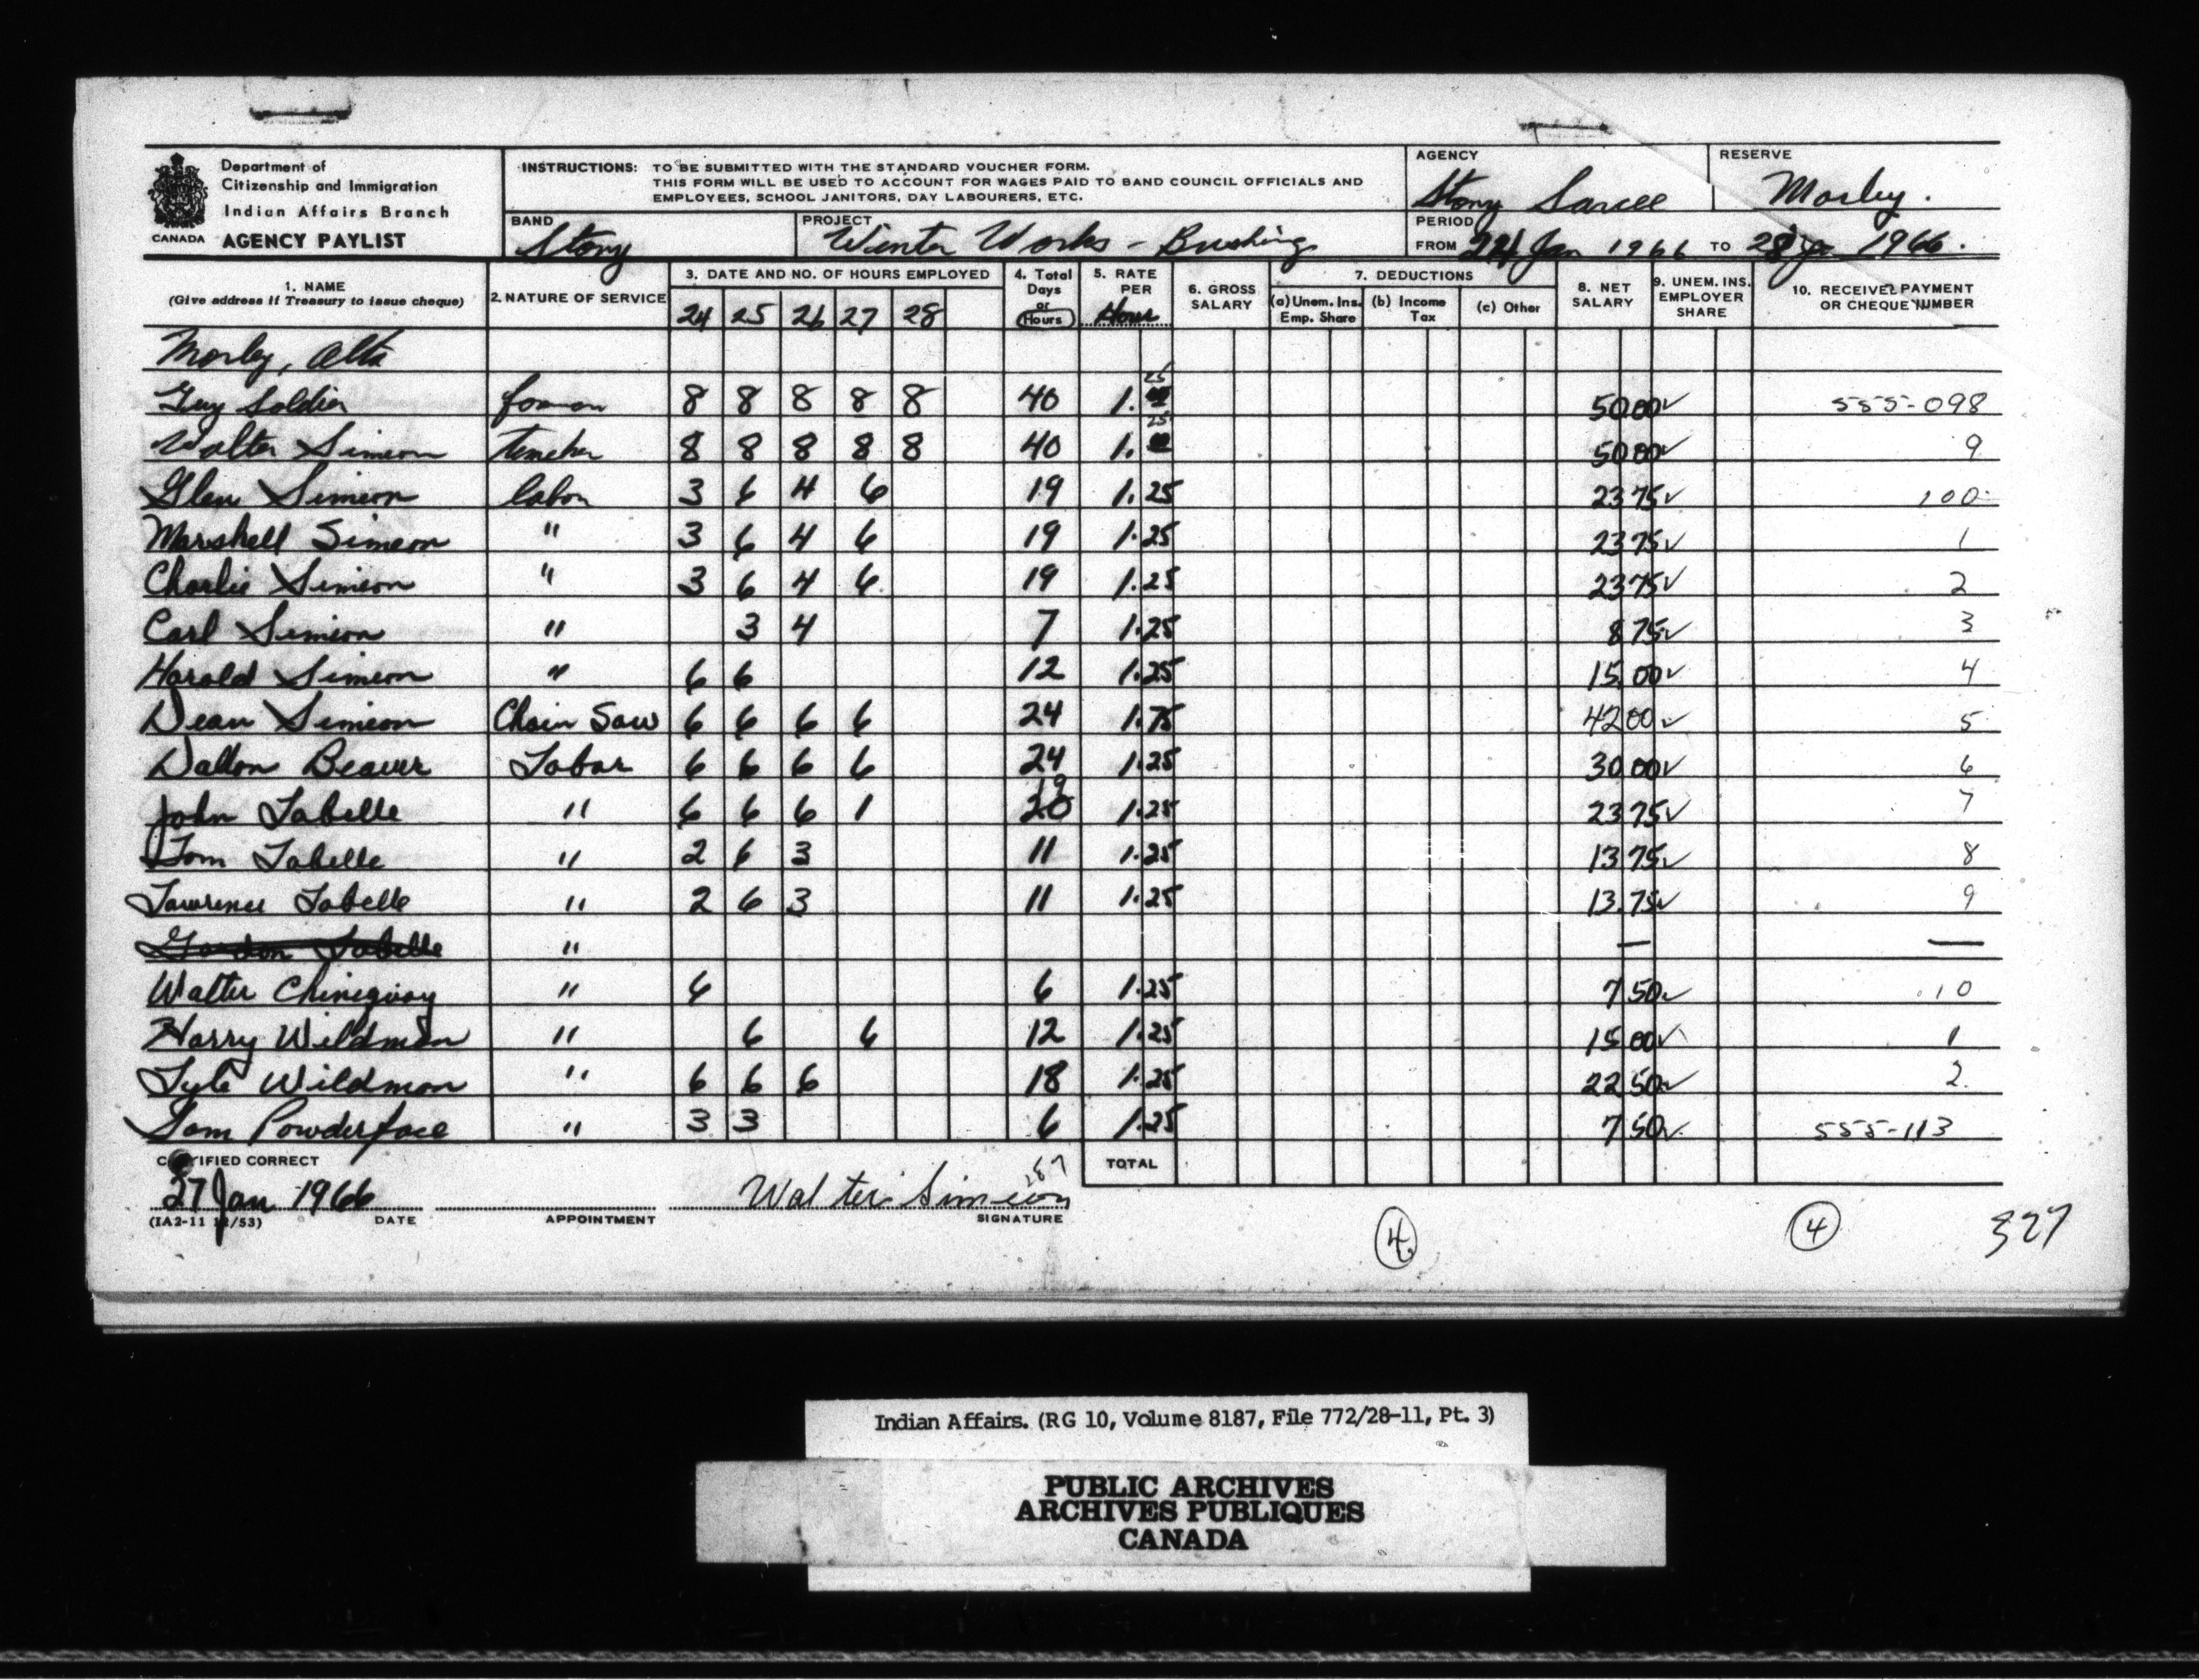 Department of
Citizenship and Immigration
Indian Affairs Branch
CANADA AGENCY PAYLIST
INSTRUCTIONS: TO BE SUBMITTED WITH THE STANDARD VOUCHER FORM.
THIS FORM WILL BE USED TO ACCOUNT FOR WAGES PAID TO BAND COUNCIL OFFICIALS AND
EMPLOYEES, SCHOOL JANITORS, DAY LABOURERS, ETC.
AGENCY Stony Sarcee
RESERVE Morley.
BAND Stony
PROJECT Winter Works - Brushing
PERIOD
FROM 24 Jan 1966 TO 28 Ja 1966.
1. NAME
(Give address if Treasury to issue cheque)
2. NATURE OF SERVICE
3. DATE AND NO. OF HOURS EMPLOYED
24 25 26 27 28
4. Total Days or Hours
5. RATE PER Hour
6. GROSS SALARY
7. DEDUCTIONS
(a) Unem. Ins. Emp. Share
(b) Income Tax
(c) Other
8. NET SALARY
9. UNEM. INS. EMPLOYER SHARE
10. RECEIVED PAYMENT OR CHEQUE NUMBER
Morley, Alta
Guy Soldier foreman 8 8 8 8 8 40 1.25 50.00 ✓ 555-098
Walter Simeon 8 8 8 8 8 40 1.25 50.00 ✓ 9
Glen Simeon labor 3 6 4 6 19 1.25 23.75 ✓ 100
Marshell Simeon " 3 6 4 6 19 1.25 23.75 ✓ 1
Charlie Simeon " 3 6 4 6 19 1.25 23.75 ✓ 2
Carl Simeon " 3 4 7 1.25 8.75 ✓ 3
Harold Simeon " 6 6 12 1.25 15.00 ✓ 4
Dean Simeon Chain Saw 6 6 6 6 24 1.75 42.00 ✓ 5
Dalton Beaver Labor 6 6 6 6 24 1.25 30.00 ✓ 6
John Labelle " 6 6 6 1 20 19 1.25 23.75 ✓ 7
Tom Labelle " 2 6 3 11 1.25 13.75 ✓ 8
Lawrence Labelle " 2 6 3 11 1.25 13.75 ✓ 9
Gordon Labelle " — —
Walter Chiniquay " 6 6 1.25 7.50 ✓ 10
Harry Wildman " 6 6 12 1.25 15.00 ✓ 1
Lyle Wildman " 6 6 6 18 1.25 22.50 ✓ 2
Sam Powderface " 3 3 6 1.25 7.50 ✓ 555-113
CERTIFIED CORRECT
TOTAL
27 Jan 1966
Walter Simeon
287
(IA2-11 12/53) DATE APPOINTMENT SIGNATURE
4 4 327
Indian Affairs. (RG 10, Volume 8187, File 772/28-11, Pt. 3)
PUBLIC ARCHIVES
ARCHIVES PUBLIQUES
CANADA